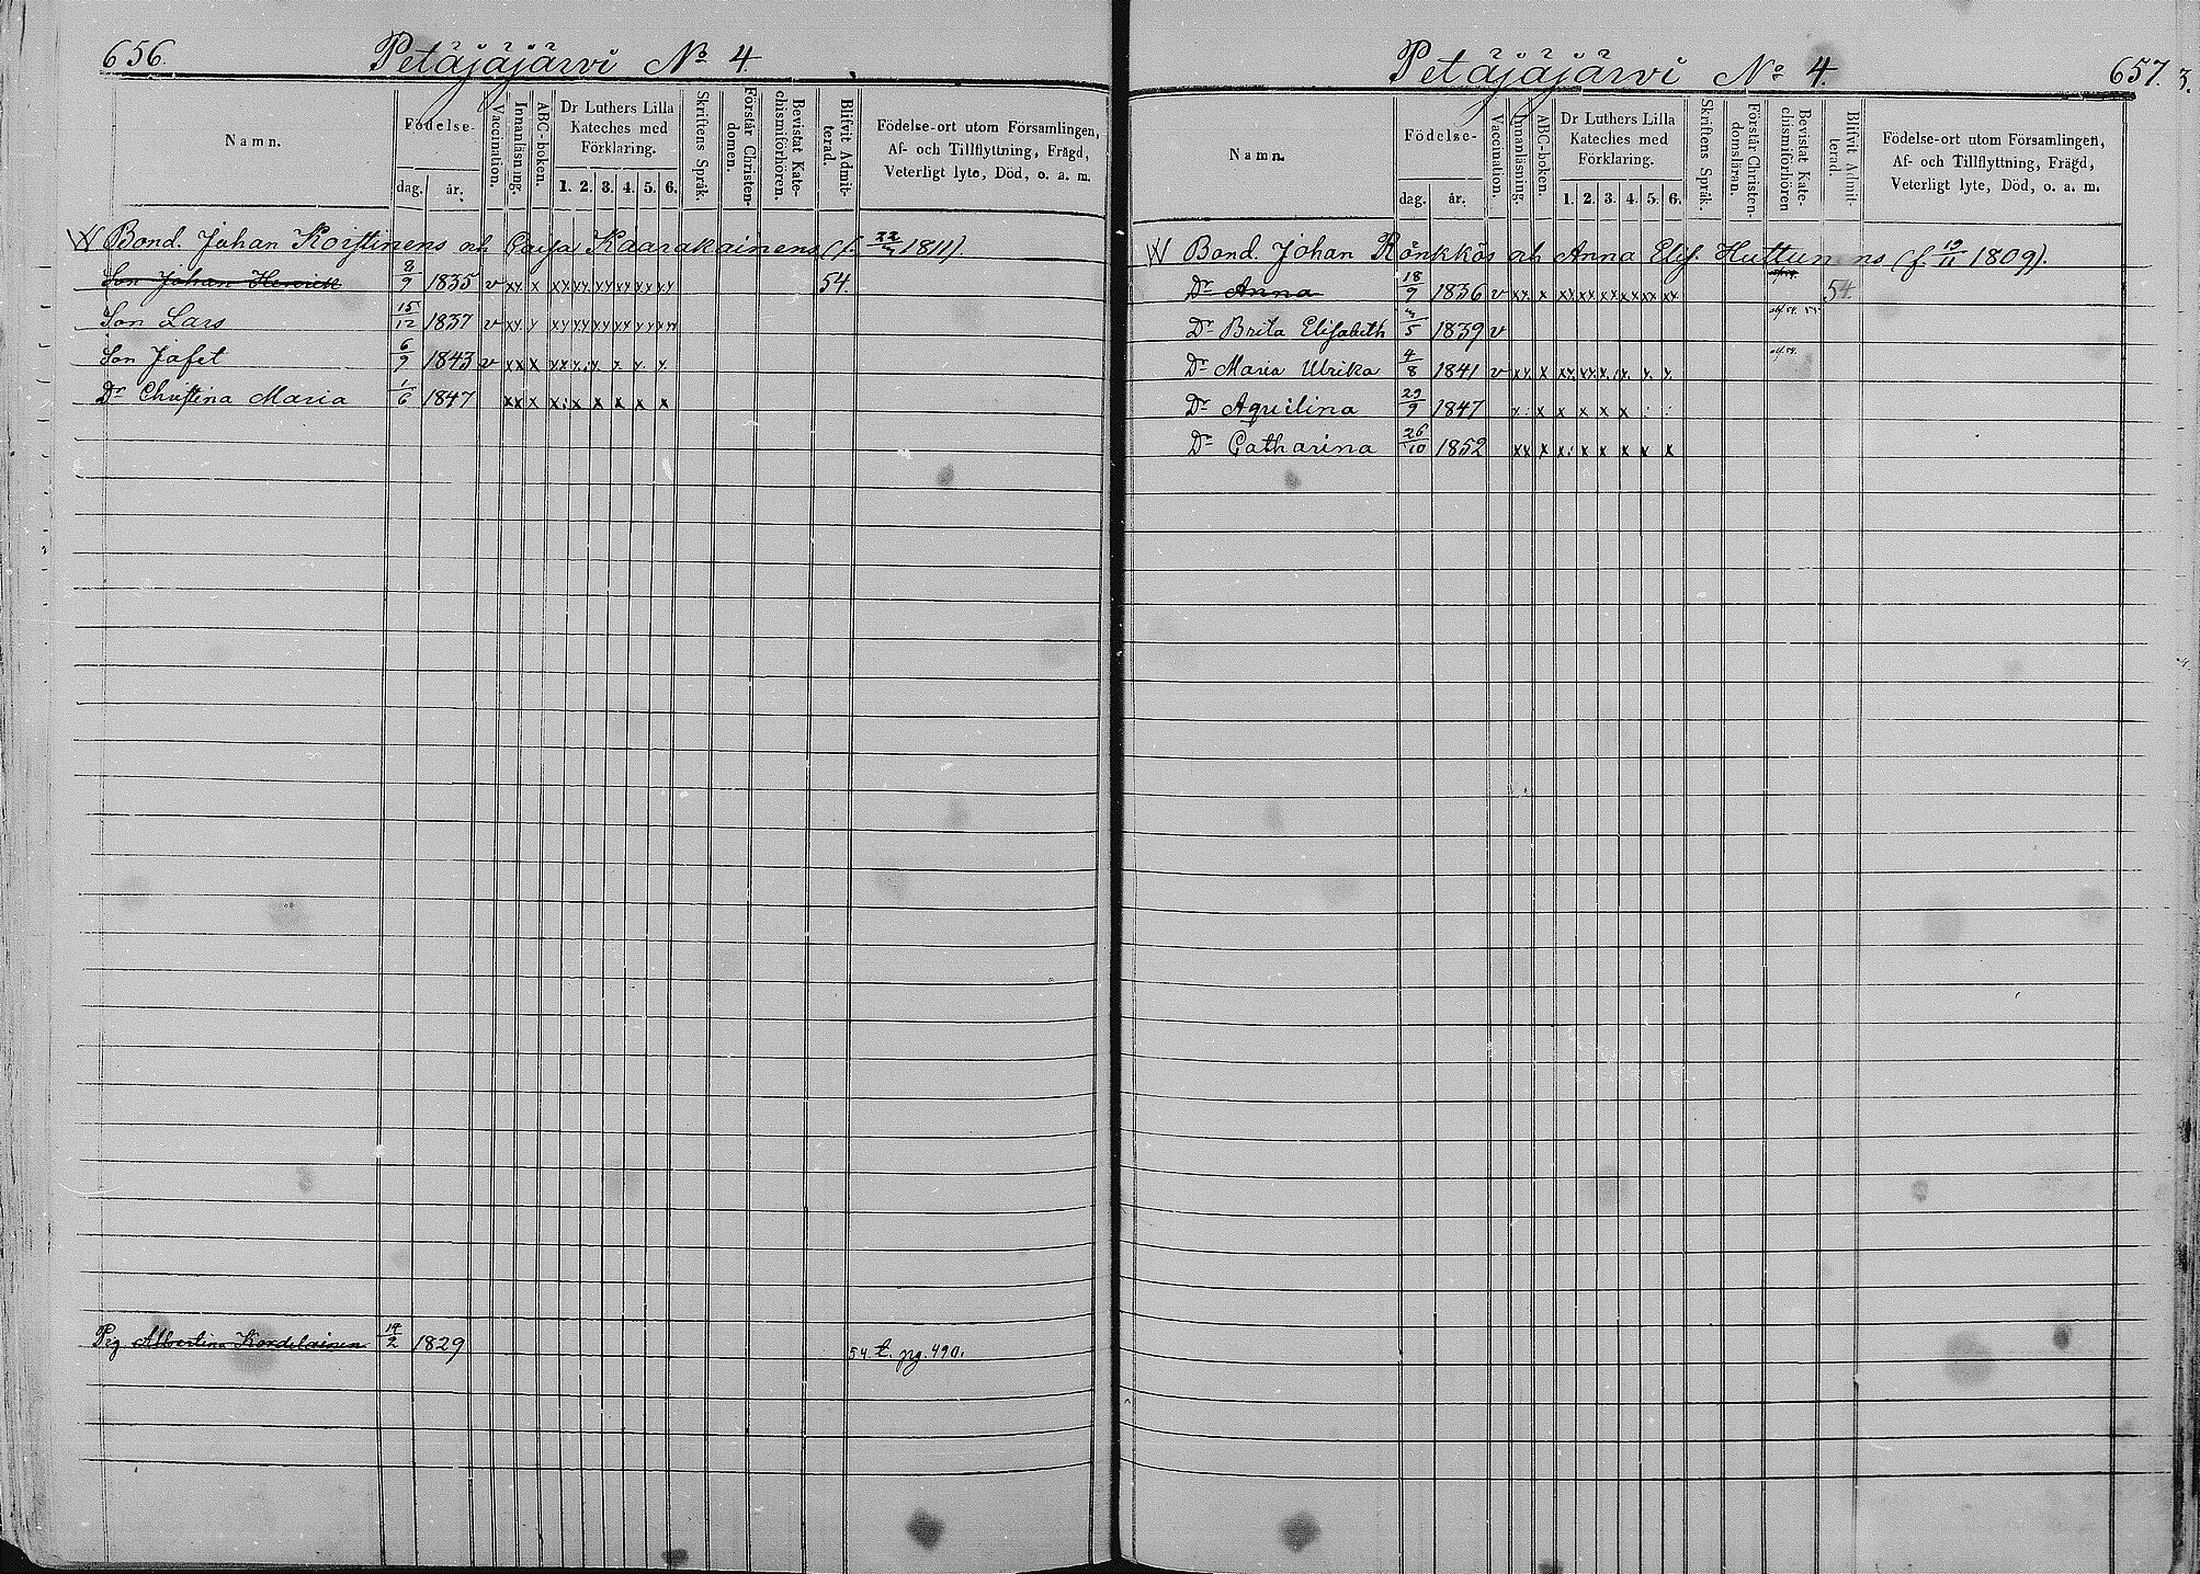 656.
Petäjäjärvi No 4.
Namn.
Födelse-
dag. år.
Vaccination.
Innanläsning.
ABC-boken.
Dr Luthers Lilla
Kateches med
Förklaring.
1. 2. 3. 4. 5. 6.
Skriftens Språk.
Förstår Christen-
domen.
Bevistat Kate-
chismiförhören.
Blifvit Admit-
terad.
Födelse-ort utom Församlingen,
Af- och Tillflyttning, Frägd,
Veterligt lyte, Död, o. a. m.
Bond. Johan Koistinens och Caisa Kaarakainens (f. 22/3 1811).
Son Johan Henrick 8/9 1835 v xx x xx xx xx xx xx xx 54.
Son Lars 15/12 1837 v
Son Jafet 6/9 1843 v xx x
Dr Christina Maria 1/6 1847 xx x x: x x x x x
Pig. Albertina Kordelainen 14/2 1829 54 t. pg. 490.
Petäjäjärvi No 4.
657.
3.
Namn.
Födelse-
dag. år.
Vaccination.
Innanläsning.
ABC-boken.
Dr Luthers Lilla
Kateches med
Förklaring.
1. 2. 3. 4. 5. 6.
Skriftens Språk.
Förstår Christen-
domsläran.
Bevistat Kate-
chismiförhören
Blifvit Admit-
terad.
Födelse-ort utom Församlingen,
Af- och Tillflyttning, Frägd,
Veterligt lyte, Död, o. a. m.
Bond. Johan Rönkkös och Anna Elis. Huttunens (f. 19/11 1809).
Dr Anna 18/9 1836 v xx x xx xx xx xx xx xx 54
Dr Brita Elisabeth 3/5 1839 v
Dr Maria Ulrika 4/8 1841 v xx x
Dr Aquilina 29/9 1847 x: x x x x x : :
Dr Catharina 26/10 1852 xx x x: x x x x x